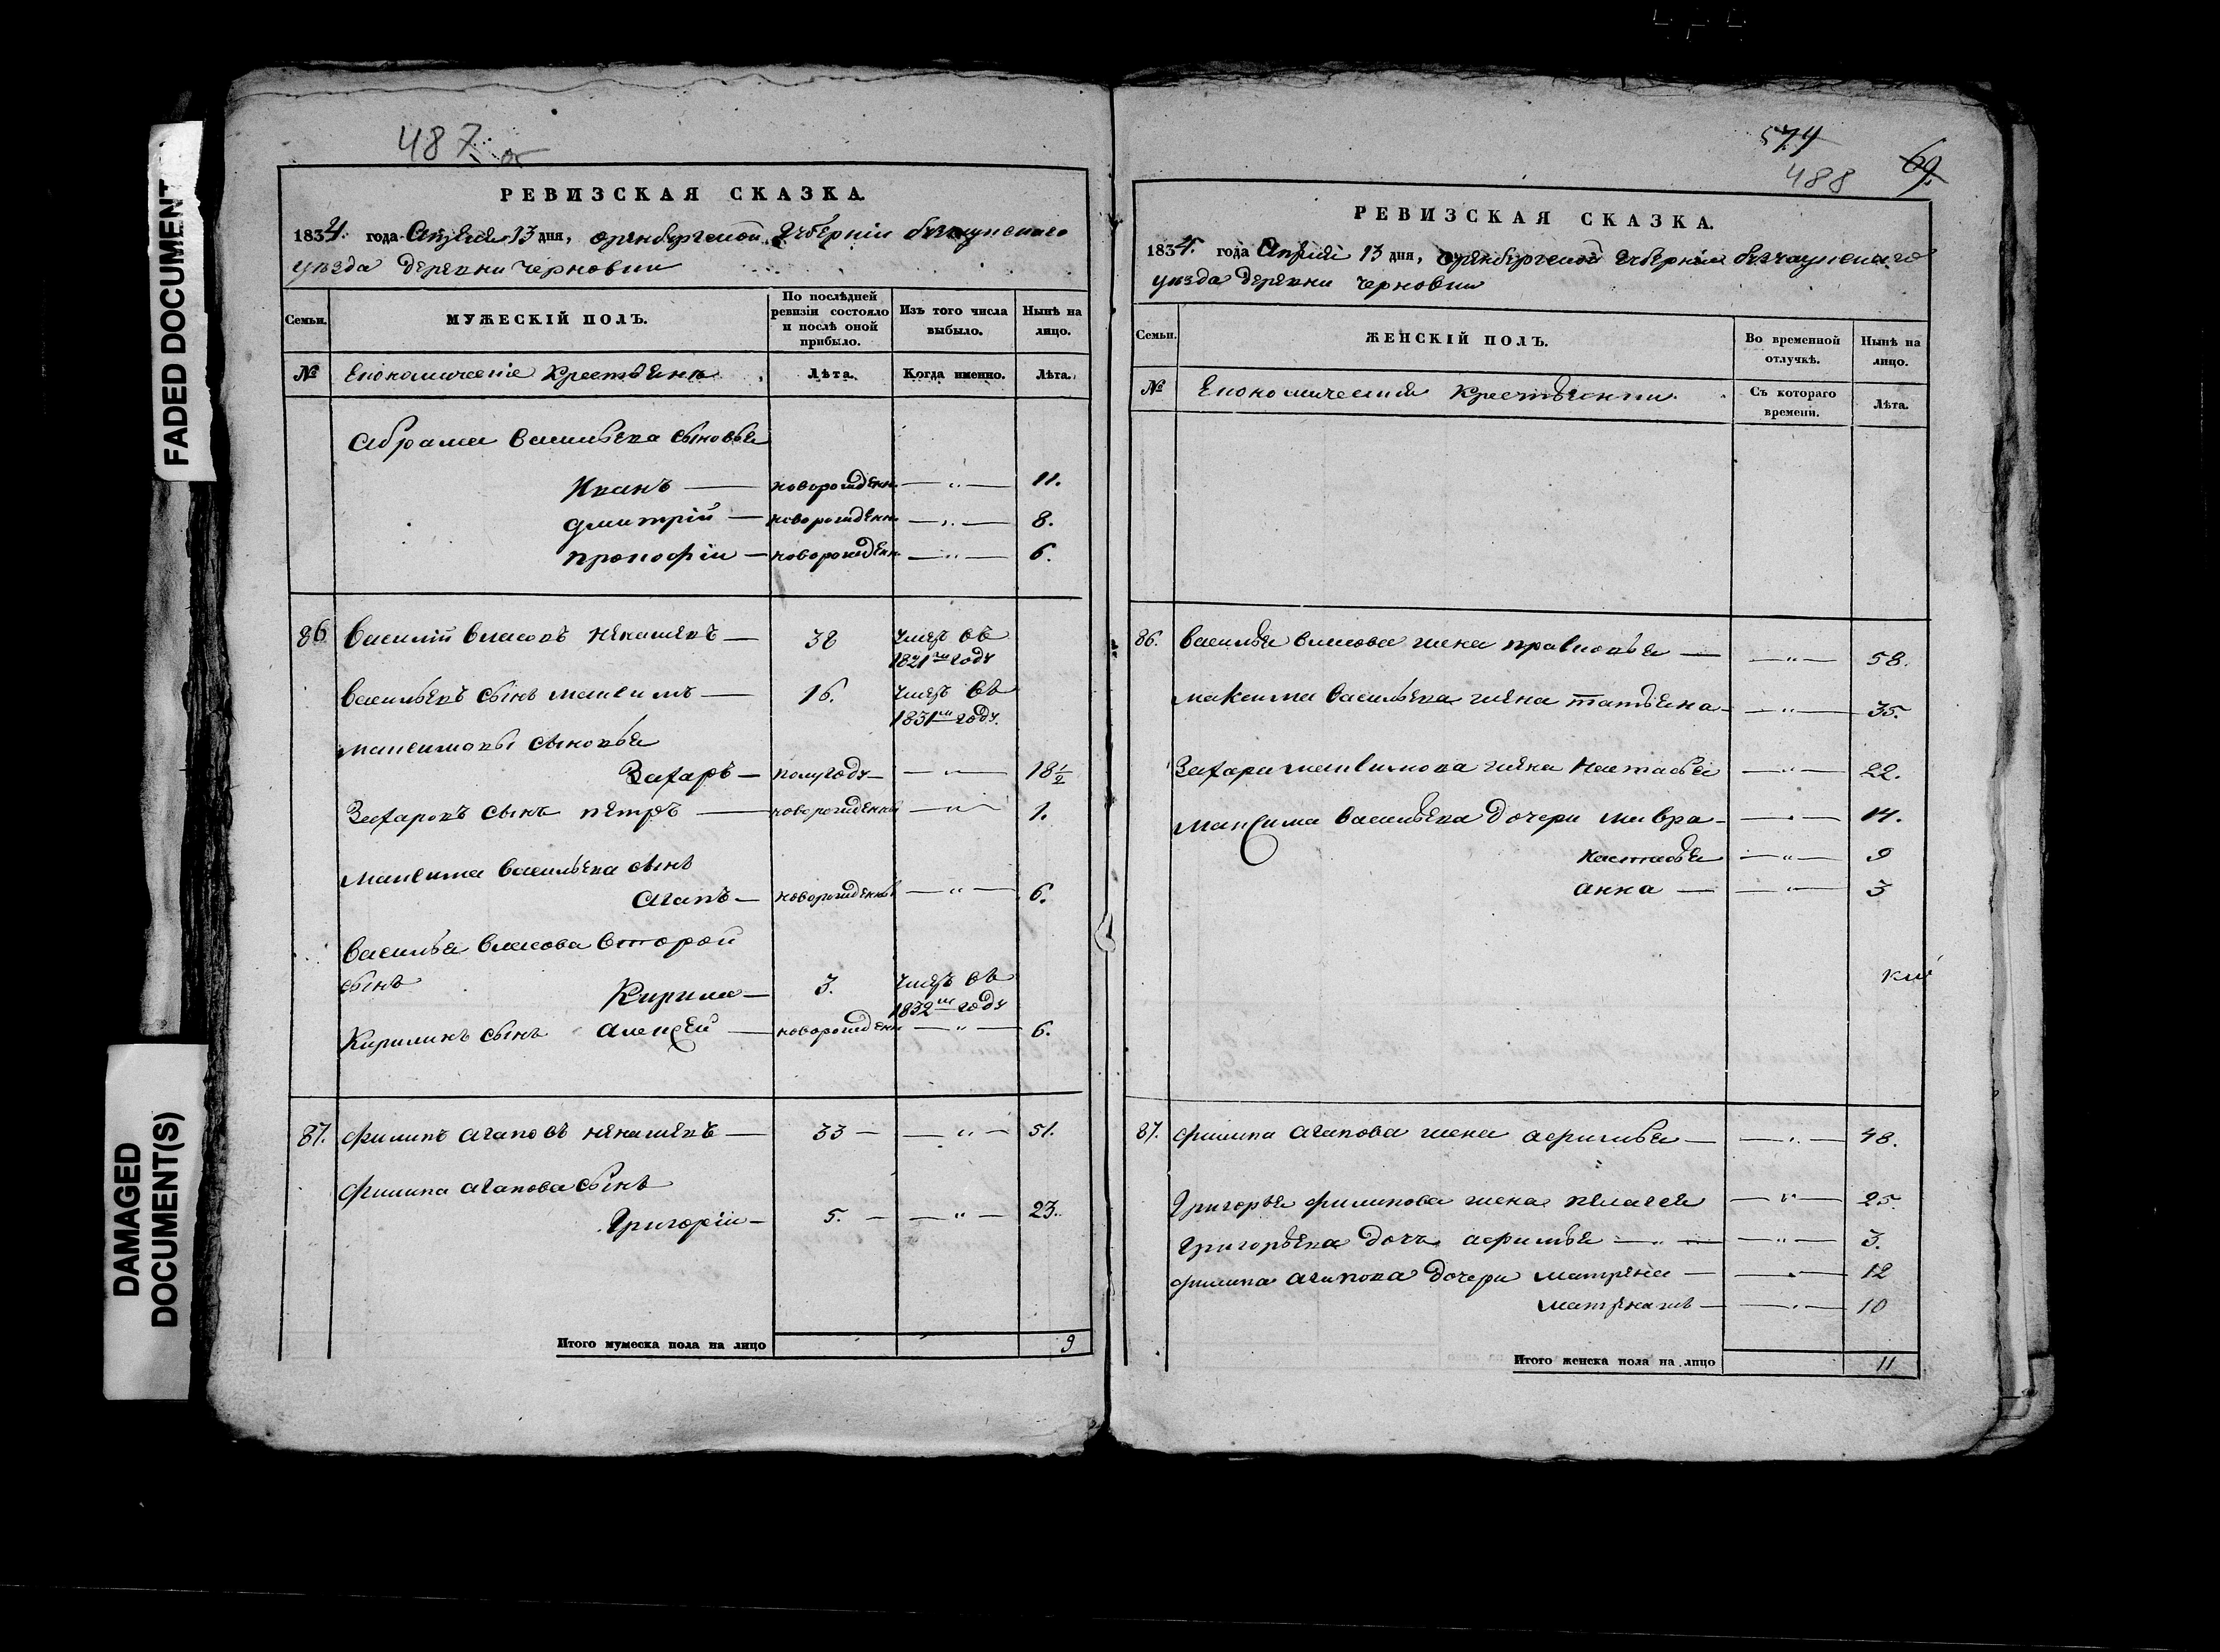 FADED DOCUMENT
DAMAGED
DOCUMENT(S)
487 об
РЕВИЗСКАЯ СКАЗКА.
1834. года Апреля 13 дня, Оренбургской Губернии
уезда деревни Черновки
Семьи.
МУЖЕСКІЙ ПОЛЪ.
По послѣдней
ревизіи состояло
и послѣ оной
прибыло.
Изъ того числа
выбыло.
Нынѣ на
лицо.
№ Економическіе Крестьяне
Лѣта. Когда именно. Лѣта.
Абрама Васильева сыновья
Иванъ — новорожден. — „ — 11.
Дмитрій — новорожден. — „ — 8.
Прокофіи — новорожден. — „ — 6.
86 Василій Власовъ — 38 умеръ въ
1821м году
Васильевъ сынъ Максимъ — 16. умеръ въ
1831м году.
Максимовы сыновья
Захаръ — полугоду — „ — 18½
Захаровъ сынъ Петръ — новорожденный — „ — 1.
Максима Васильева сынъ
Агапъ — новорожденный — „ — 6.
Василья Власова второй
сынъ
Кирила — 3. умеръ въ
1832м году
Кирилинъ сынъ Алексей — новорожден — „ — 6.
87. Филипъ Агаповъ — 33 — — „ — 51.
Филипа Агапова сынъ
Григоріи — 5. — — „ — 23.
Итого мужеска пола на лицо 9
574
488 69.
РЕВИЗСКАЯ СКАЗКА.
1834. года Апреля 13 дня, Оренбургской Губернии
уезда деревни Черновки
Семьи.
ЖЕНСКІЙ ПОЛЪ.
Во временной
отлучкѣ.
Нынѣ на
лицо.
№ Економический Крестьянки.
Съ котораго
времени.
Лѣта.
86. Василья Власова жена Правковья — — „ — 58.
Максима Васильева жена Татьяна — — „ — 35.
Захара Максимова жена Настасья — „ — 22.
Максима Васильева дочери Мавра — — „ — 14.
Настасья — „ — 9
Анна — — „ — 3
87. Филипа Агапова жена Афимья — — „ — 48.
Григорья Филипова жена Пелагея — „ — 25.
Григорьева дочь Афимья — „ — — „ — 3.
Филипа Агапова дочери Матрена — — „ — 12
10
Итого женска пола на лицо 11